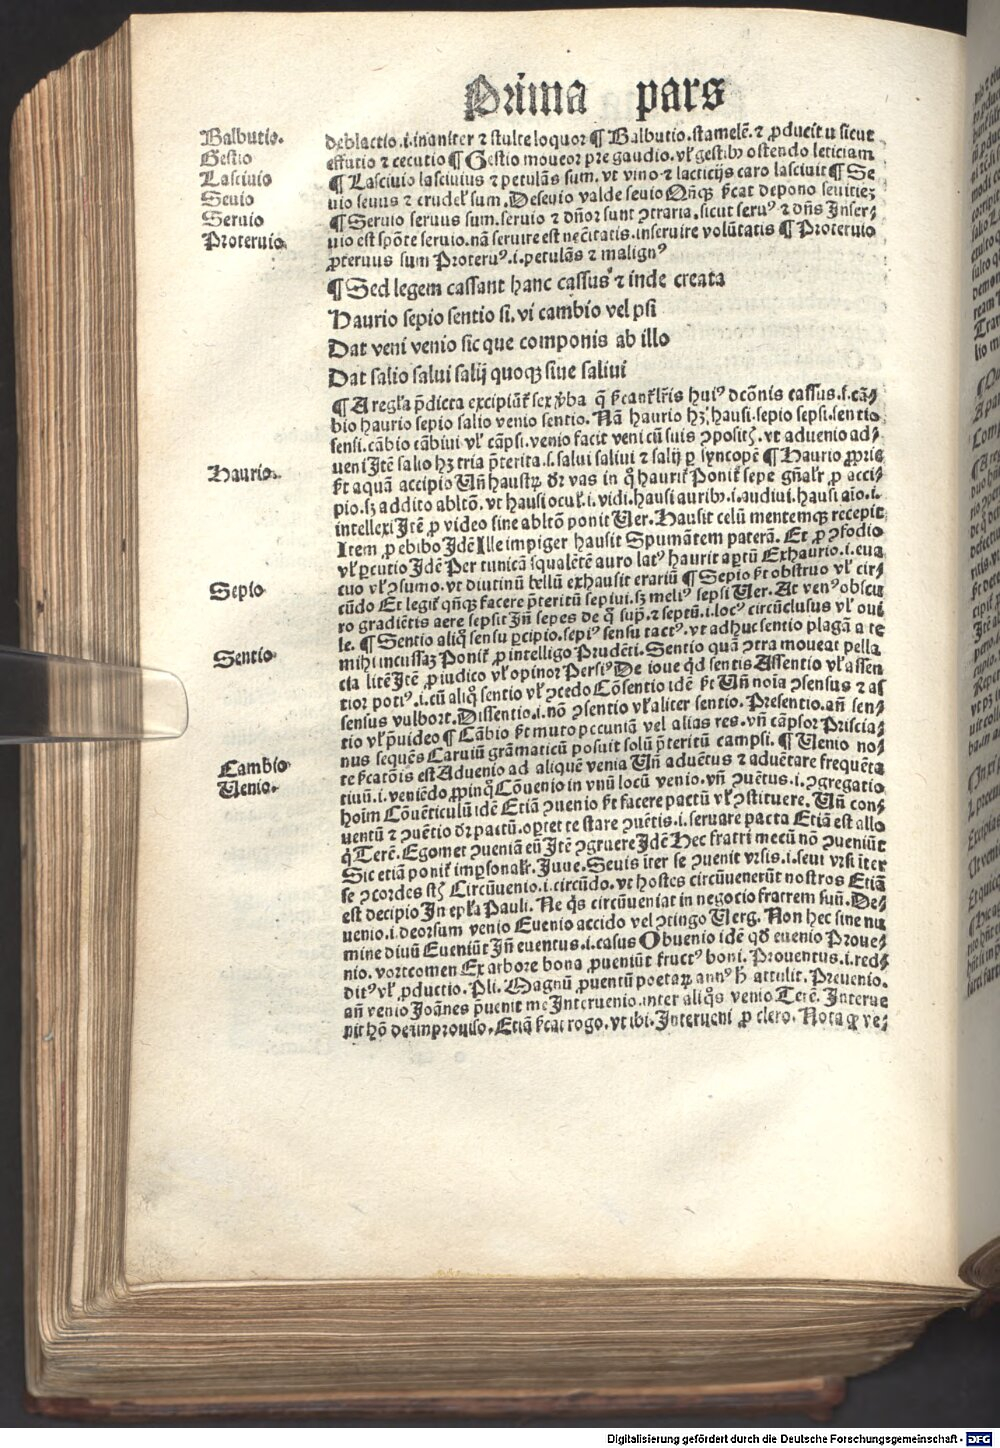 Prima pars
Balbutio.
Gestio
Lasciuio
Seuio
Seruio
Proteruio.
deblactio .i. inaniter ⁊ stulte loquor ¶ Balbutio. stamelē. ⁊ ꝓducit u sicut
effutio ⁊ cecutio ¶ Gestio moueor pre gaudio. vl̛ gestibꝰ ostendo leticiam
¶ Lasciuio lasciuius ⁊ petulās sum. vt vino ⁊ lacticijs caro lasciuit ¶ Se
uio seuus ⁊ crudel̛ sum. Deseuio valde seuio Qn̄qꝫ s̄cat depono seuitieꝫ
¶ Seruio seruus sum. seruio ⁊ dn̄or sunt ꝯtraria. sicut seruꝰ ⁊ dn̄s Inser⸗
uio est spōte seruio. nā seruire est necītatis. inseruire volūtatis ¶ Proteruio
ꝓteruus sum Proteruꝰ .i. petulās ⁊ malignꝰ
¶ Sed legem cassant hanc cassus ⁊ inde creata
Haurio sepio sentio si. vi cambio vel psi
Dat veni venio sic que componis ab illo
Dat salio salui salij quoqꝫ siue saliui
¶ A regl̛a p̄dicta excipiūt̛ sex v̛ba q̄ s̄cant̛ l̛r̄is huiꝰ dcōnis cassus .s. cā⸗
bio haurio sepio salio venio sentio. Nā haurio hꝫ hausi. sepio sepsi. sentio
sensi. cābio cābiui vl̛ cāpsi. venio facit veni cū suis ꝯpositꝭ. vt aduenio ad⸗
ueni Itē salio hꝫ tria p̄terita .s. salui saliui ⁊ salij ꝑ syncopē ¶ Haurio ꝓprie
Haurio.
s̄t aquā accipio Vn̄ haustꝝ dr̄ vas in q̊ haurit̛ Ponit̛ sepe gn̄al̛r ꝓ acci⸗
pio. sꝫ addito abltō. vt hausi ocul̛ .i. vidi. hausi auribꝰ .i. audiui. hausi aīo .i.
intellexi Itē ꝓ video sine abltō ponit Uer. Hausit celū mentemqꝫ recepit
Item ꝓ ebibo Idē Ille impiger hausit Spumātem paterā. Et ꝓ ꝯfodio
vl̛ ꝑcutio Idē Per tunicā squalētē auro latꝰ haurit apertū Exhaurio .i. eua
cuo vl̛ ꝯsumo. vt diutinū bellū exhausit erariū ¶ Sepio s̄t obstruo vl̛ cir⸗
Sepio.
cūdo Et legit̛ qn̄qꝫ facere p̄teritū sepiui. sꝫ meliꝰ sepsi Uer. At venꝰ obscu
ro gradiētis aere sepsit In̄ sepes de q̊ sup̄. ⁊ septū .i. locꝰ circūclusus vl̛ oui
le. ¶ Sentio aliq̊ sensu ꝑcipio. sepiꝰ sensu tactꝰ. vt adhuc sentio plagā a te
Sentio.
mihi incussaꝫ Ponit̛ ꝓ intelligo Prudēti. Sentio quā ꝯtra moueat pella
cia litē Itē ꝓ iudico vl̛ opinor Persiꝰ De ioue qd̛ sentis Assentio vl̛ assen
tior potiꝰ .i. cū aliq̊ sentio vl̛ ꝯcedo Cōsentio idē s̄t Un̄ noīa ꝯsensus ⁊ as
sensus vulbort. Dissentio .i. nō ꝯsentio vl̛ aliter sentio. Presentio. an̄ sen⸗
tio vl̛ p̄uideo ¶ Cābio s̄t muto pccuniā vel alias res. vn̄ cāpsor Priscia⸗
nus sequēs Caruiū grāmaticū posuit solū p̄teritū campsi. ¶ Uenio no⸗
Cambio
Uenio.
te s̄catōis est Aduenio ad aliquē venia Un̄ aduētus ⁊ aduētare frequēta
tiuū .i. veniēdo ꝓpinq̄ Cōuenio in vnū locū venio. vn̄ ꝯuētus .i. ꝯgregatio
hoim Cōuēticulū idē Etiā ꝯuenio s̄t facere pactū vl̛ ꝯstituere. Un̄ con⸗
uentū ⁊ ꝯuētio dr̄ pactū. oꝑtet te stare ꝯuētis .i. seruare pacta Etiā est allo
q̊ Terē. Egomet ꝯueniā eū Itē ꝯgruere Idē Hec fratri mecū nō ꝯueniūt
Sic etiā ponit̛ imꝑsonal̛r. Juue. Seuis īter se ꝯuenit vrsis .i. seui vrsi īter
se ꝯcordes st̄ Circūuenio .i. circūdo. vt hostes circūuenerūt nostros Etiā
est decipio In epl̛a Pauli. Ne q̊s circūueniat in negocio fratrem suū. De⸗
uenio .i. deorsum venio Euenio accido vel ꝯtingo Uerg. Non hec sine nu
mine diuū Eueniūt In̄ euentus .i. casus Obuenio idē qd̛ euenio Proue⸗
nio. vortcomen Ex arbore bona ꝓueniūt fructꝰ boni. Prouentus .i. red⸗
ditꝰ vl̛ ꝓductio. Pli. Magnū ꝓuentū poetaꝝ annꝰ h̄ attulit. Preuenio.
an̄ venio Joānes p̄uenit me Interuenio. inter aliq̊s venio Terē. Interue
nit hō de improuiso. Etiā s̄cat rogo. vt ibi. Interueni ꝓ clero. Nota ꝙ ve⸗
Digitalisierung gefördert durch die Deutsche Forschungsgemeinschaft - DFG